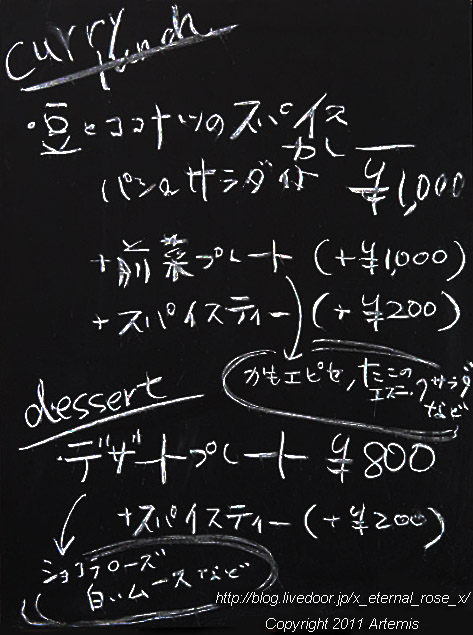 curry lunch
・豆とココナツのスパイス
カレー
パン or サラダ付 ¥1,000
+前菜プレート (+¥1,000)
+スパイスティー (+¥200)
かもエピセ, たこのエスニックサラダ
など
dessert
・デザートプレート ¥800
+スパイスティー (+¥200)
ショコラローズ
白いムースなど
http://blog.livedoor.jp/x_eternal_rose_x/
Copyright 2011 Artemis